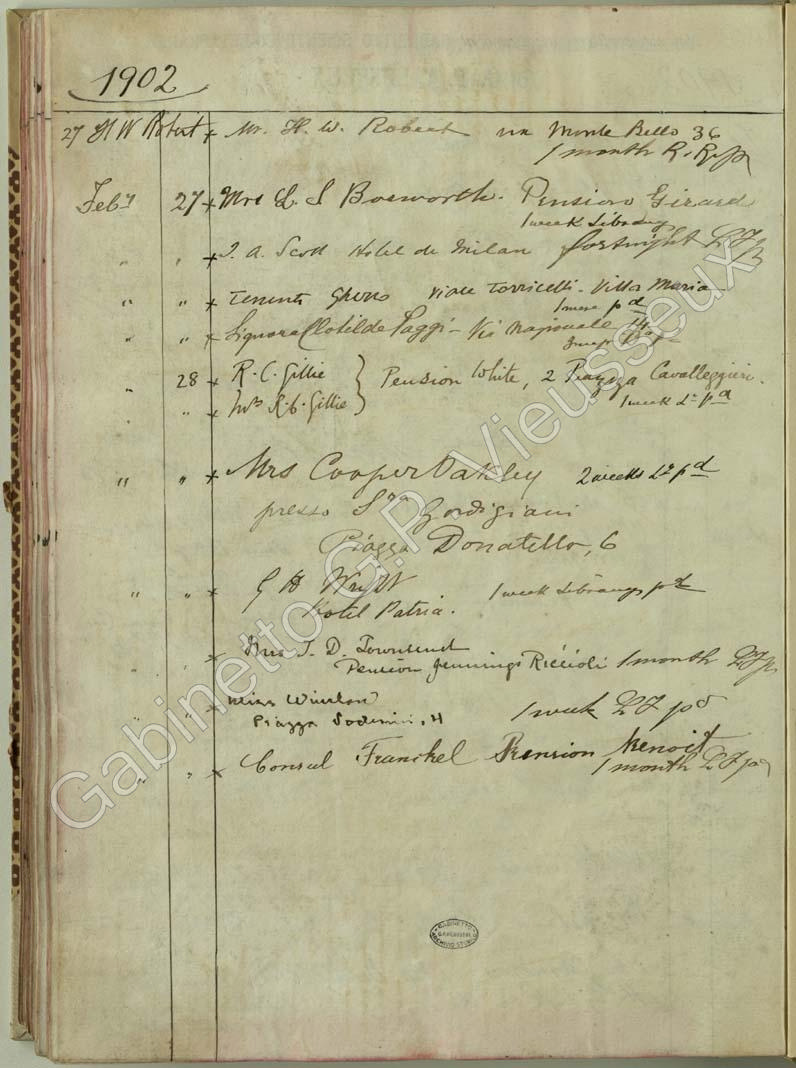 1902
27 H W Robert x Mr. H. W. Robert via Monte Bello 36
1 month R. R. p
Feby 27 x Mrs L. S Bosworth. Pension Girard
1 week Library
" " x J. A. Scott Hotel de Milan fortnight L. F. p
" " x Tenente Viale Torricelli - Villa Maria
1 mese pd
" " x Signora Clotilde Paggi - Via Nazionale 14
28 x R. C. Gillie } Pension White, 2 Piazza Cavalleggieri.
" x Mrs R. C. Gillie } 1 week L. pd
" " x Mrs Cooper Oakley 2 weeks L. pd
presso Sra Gordigiani
Piazza Donatello, 6
" " x G H Wright 1 week Library pd
Hotel Patria.
" x Mrs J. D. Townsend
Pension Jennings Riccioli 1 month L F p
" " x Miss Winslow
Piazza Soderini, 4 1 week L F pd
" " x Consul Franckel Pension Benoit
1 month L F pd
GABINETTO
G.P. VIEUSSEUX
ARCHIVIO STORICO
Gabinetto G.P. Vieusseux